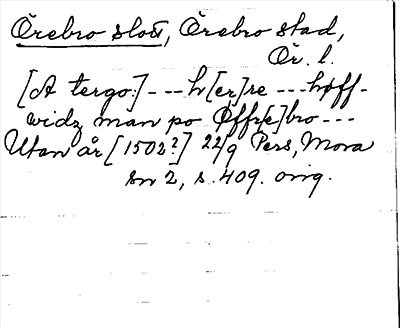 Örebro slott, Örebro stad,
Ör. l.
[A tergo:] - - - h[er]re - - - høff-
widz man po Øffr[e]bro - - -
Utan år [1502?] 22/9 Pers, Mora
sn 2, s. 409. orig.